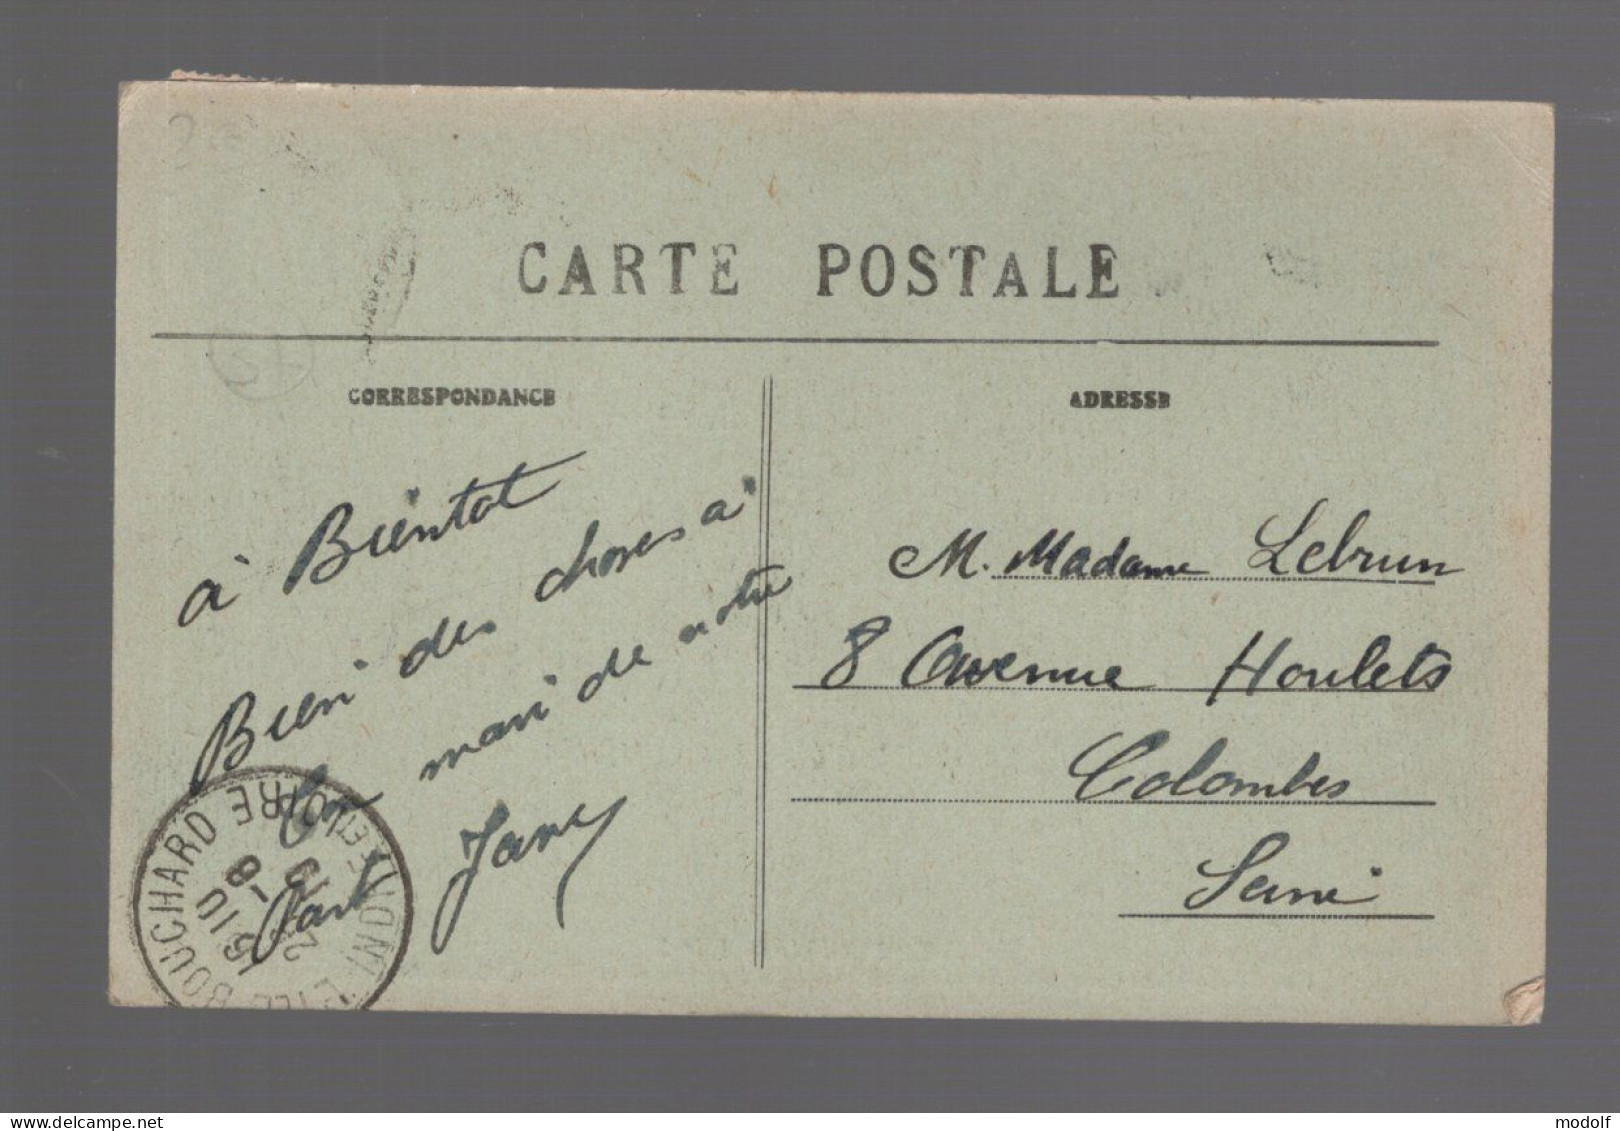 CARTE POSTALE
CORRESPONDANCE
ADRESSE
à Bientot
Bien des choses a
mari de notre
Part Jany
M. Madame Lebrun
8 Avenue Houlets
Colombes
Seine
BOUCHARD
INDRE ET LOIRE
modolf